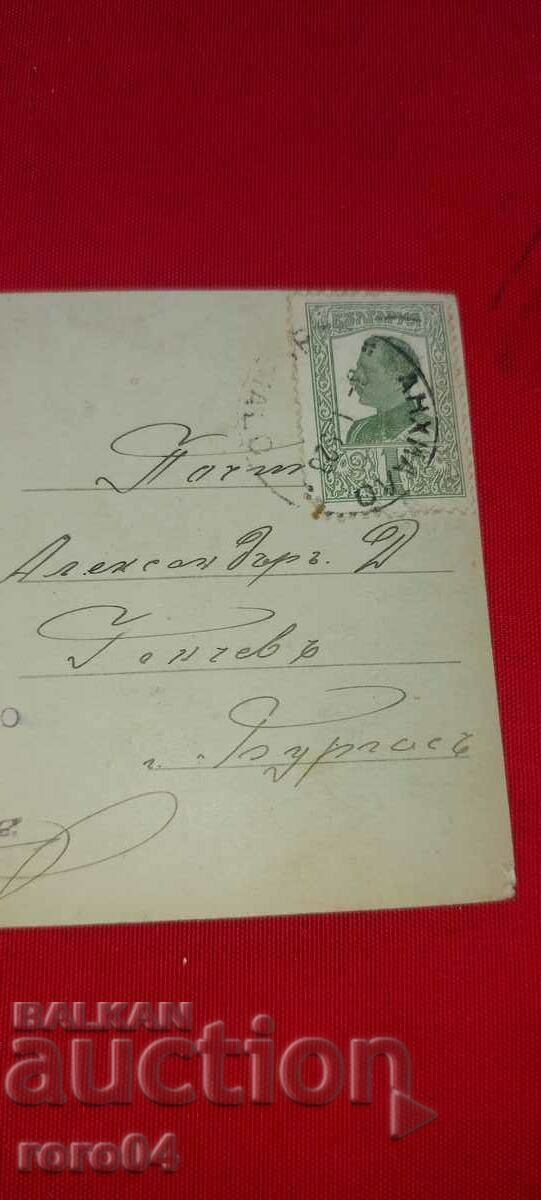 БЪЛГАРИЯ
АНХИАЛО
1
Александъръ Д
Гончевъ
г. Бургасъ
BALKAN
auction
roro04